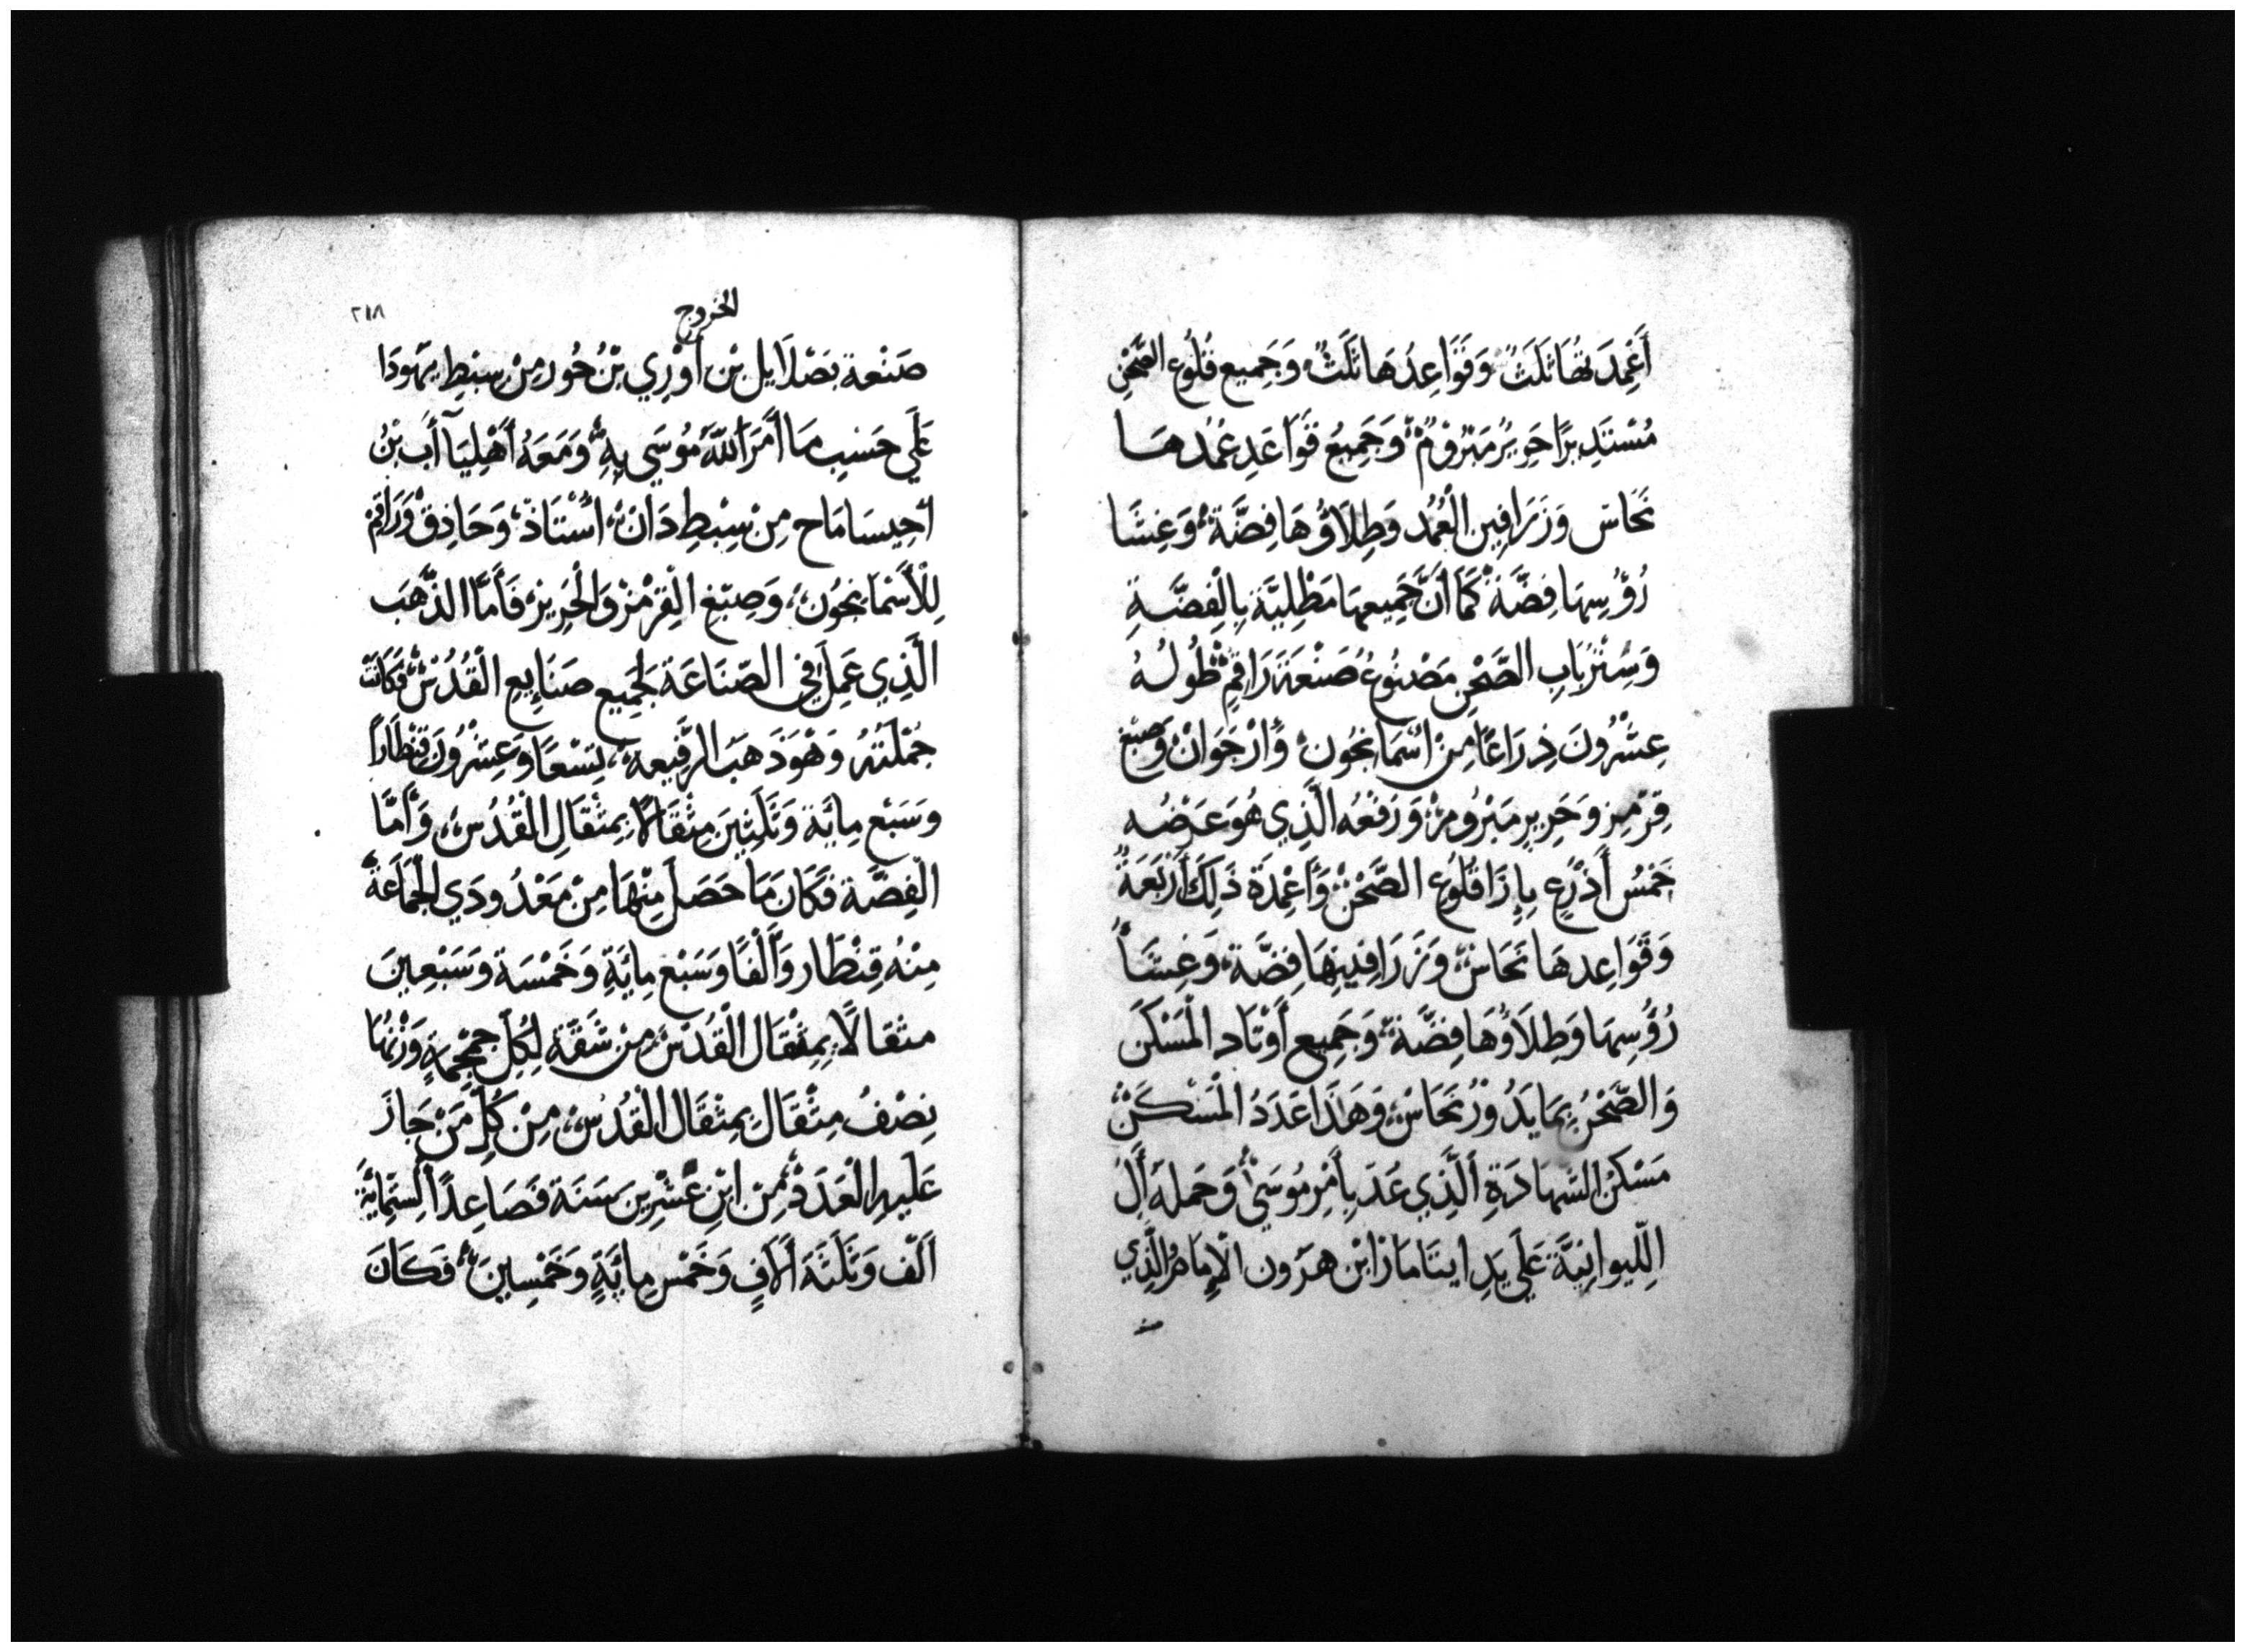 أَعْمِدَتُهَا ثَلَثٌ وَقَوَاعِدُهَا ثَلَثٌ وَجَمِيع قُلُوع الصَّحْنِ
مُسْتَدِيرًا حَرِيرٌ مَبْرُومٌ وَجَمِيعُ قَوَاعَدِ عُمُدهَا
نَحَاسٌ وَزَرَافِين الْعُمُد وَطِلَاؤُهَا فِضَّة وَغِشَا
رُؤُسِهَا فِضَّة كَمَا أَنَّ جَمِيعهَا مَطْلِيَّة بِالْفِضَّةِ
وَسِتْرُ بَابِ الصَّحْنِ مَصْنُوعُ صَنْعَةَ رَاقِمٍ طُولُهُ
عِشْرُونَ ذِرَاعًا مِنْ أَسْمَانجُون وَأُرْجَوَانْ وَصِبْغ
قِرْمِز وَحَرِيرِ مَبْرُومْ وَرَفْعُه الَّذِي هُوَ عَرْضُه
خَمْسُ أَذْرُعٍ بِإِزَا قُلُوعِ الصَّحْنْ وَأَعْمِدَة ذَلِكَ أَرْبَعَةٌ
وَقَوَاعِدهَا نَحَاسٌ وَزَرَافِينِهَا فِضَّة وَغِشَا
رُؤُسِهَا وَطِلَاؤُهَا فِضَّة وَجَمِيع أَوْتَاد الْمَسْكَن
وَالصَّحْنُ بِمَا يَدُورْ نَحَاسٌ وَهَذَا عَدَدُ الْمَسْكَنْ
مَسْكَنُ الشَّهَادَةِ الَّذِي عَدَّ بِأَمْرِ مُوسَى وَحَمَلَه أَلُ
اللِّيوانِيَّة عَلَي يَدِ ايتَامَارْ ابْن هَرُون الْإِمَامُ الَّذِي
صنـ
الخروج
٢١٨
صَنْعة بَصْلَايل بْن أُوْرِي بْنُ حُور مِنْ سِبْطِ يَهُودَا
عَلَي حَسَبِ مَا أَمَرَ اللّهُ مُوسَي بِهِ وَمَعَهُ أَهْلِيَآأَب بْنُ
أحِيسَامَاح مِنْ سِبْطِ دَان أُسْتَاذ وَحَاذِقْ وَرَاقِمْ
لِلْأَسْمَانجُون وَصِبْغ الْقِرْمْز وَالْحَرِيرْ فَأَمَّا الذَّهَب
الَّذِي عَمِلَ فِي الصِّنَاعَة لِجَمِيع صَنَايِع الْقُدْس فَكَانَتْ
جُمْلَتُهُ وَهُوَ ذَهَب الرَّفِيعه تِسْعًا وَعِشْرُونَ قِنْطَارًا
وَسَبْع مِايَة وَثَلَثِينَ مِثْقَالًا بِمِثْقَالِ الْقُدُس وَأَمَّا
الْفِضَّة فَكَانَ مَا حَصَلَ مِنْهَا مِنْ مَعْدُودَي الْجَمَاعَة
مِنْهُ قِنْطَار وَأَلْفًا وَسَبْع مِايَةِ وَخَمْسَة وَسَبْعِينَ
مثقالًا بِمِثْقَال الْقُدْسْ مِنْ شَقَّةِ لِكُلِّ جُمْجُمَةٍ وَزْنُهَا
نِصْفُ مِثْقَال بِمِثْقَال الْقُدْس مِنْ كُلِّ مَنْ جَازَ
عَلَيهِ الْعَدَدْ مِن ابْنِ عِشْرِينَ سَنَة فَصَاعِداً لِسِتِّمِايَة
اَلْف وَثَلَثَة أَلَافٍ وَخَمْسِ مِايَةٍ وَخَمْسِينَ فَكَانَ